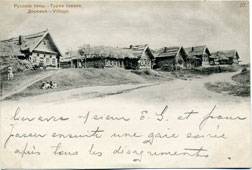 Русскіе типы.—Types russes.
Деревня.—Village.
et pour
passer ensuite une gaie soirée
après tous les désagréments